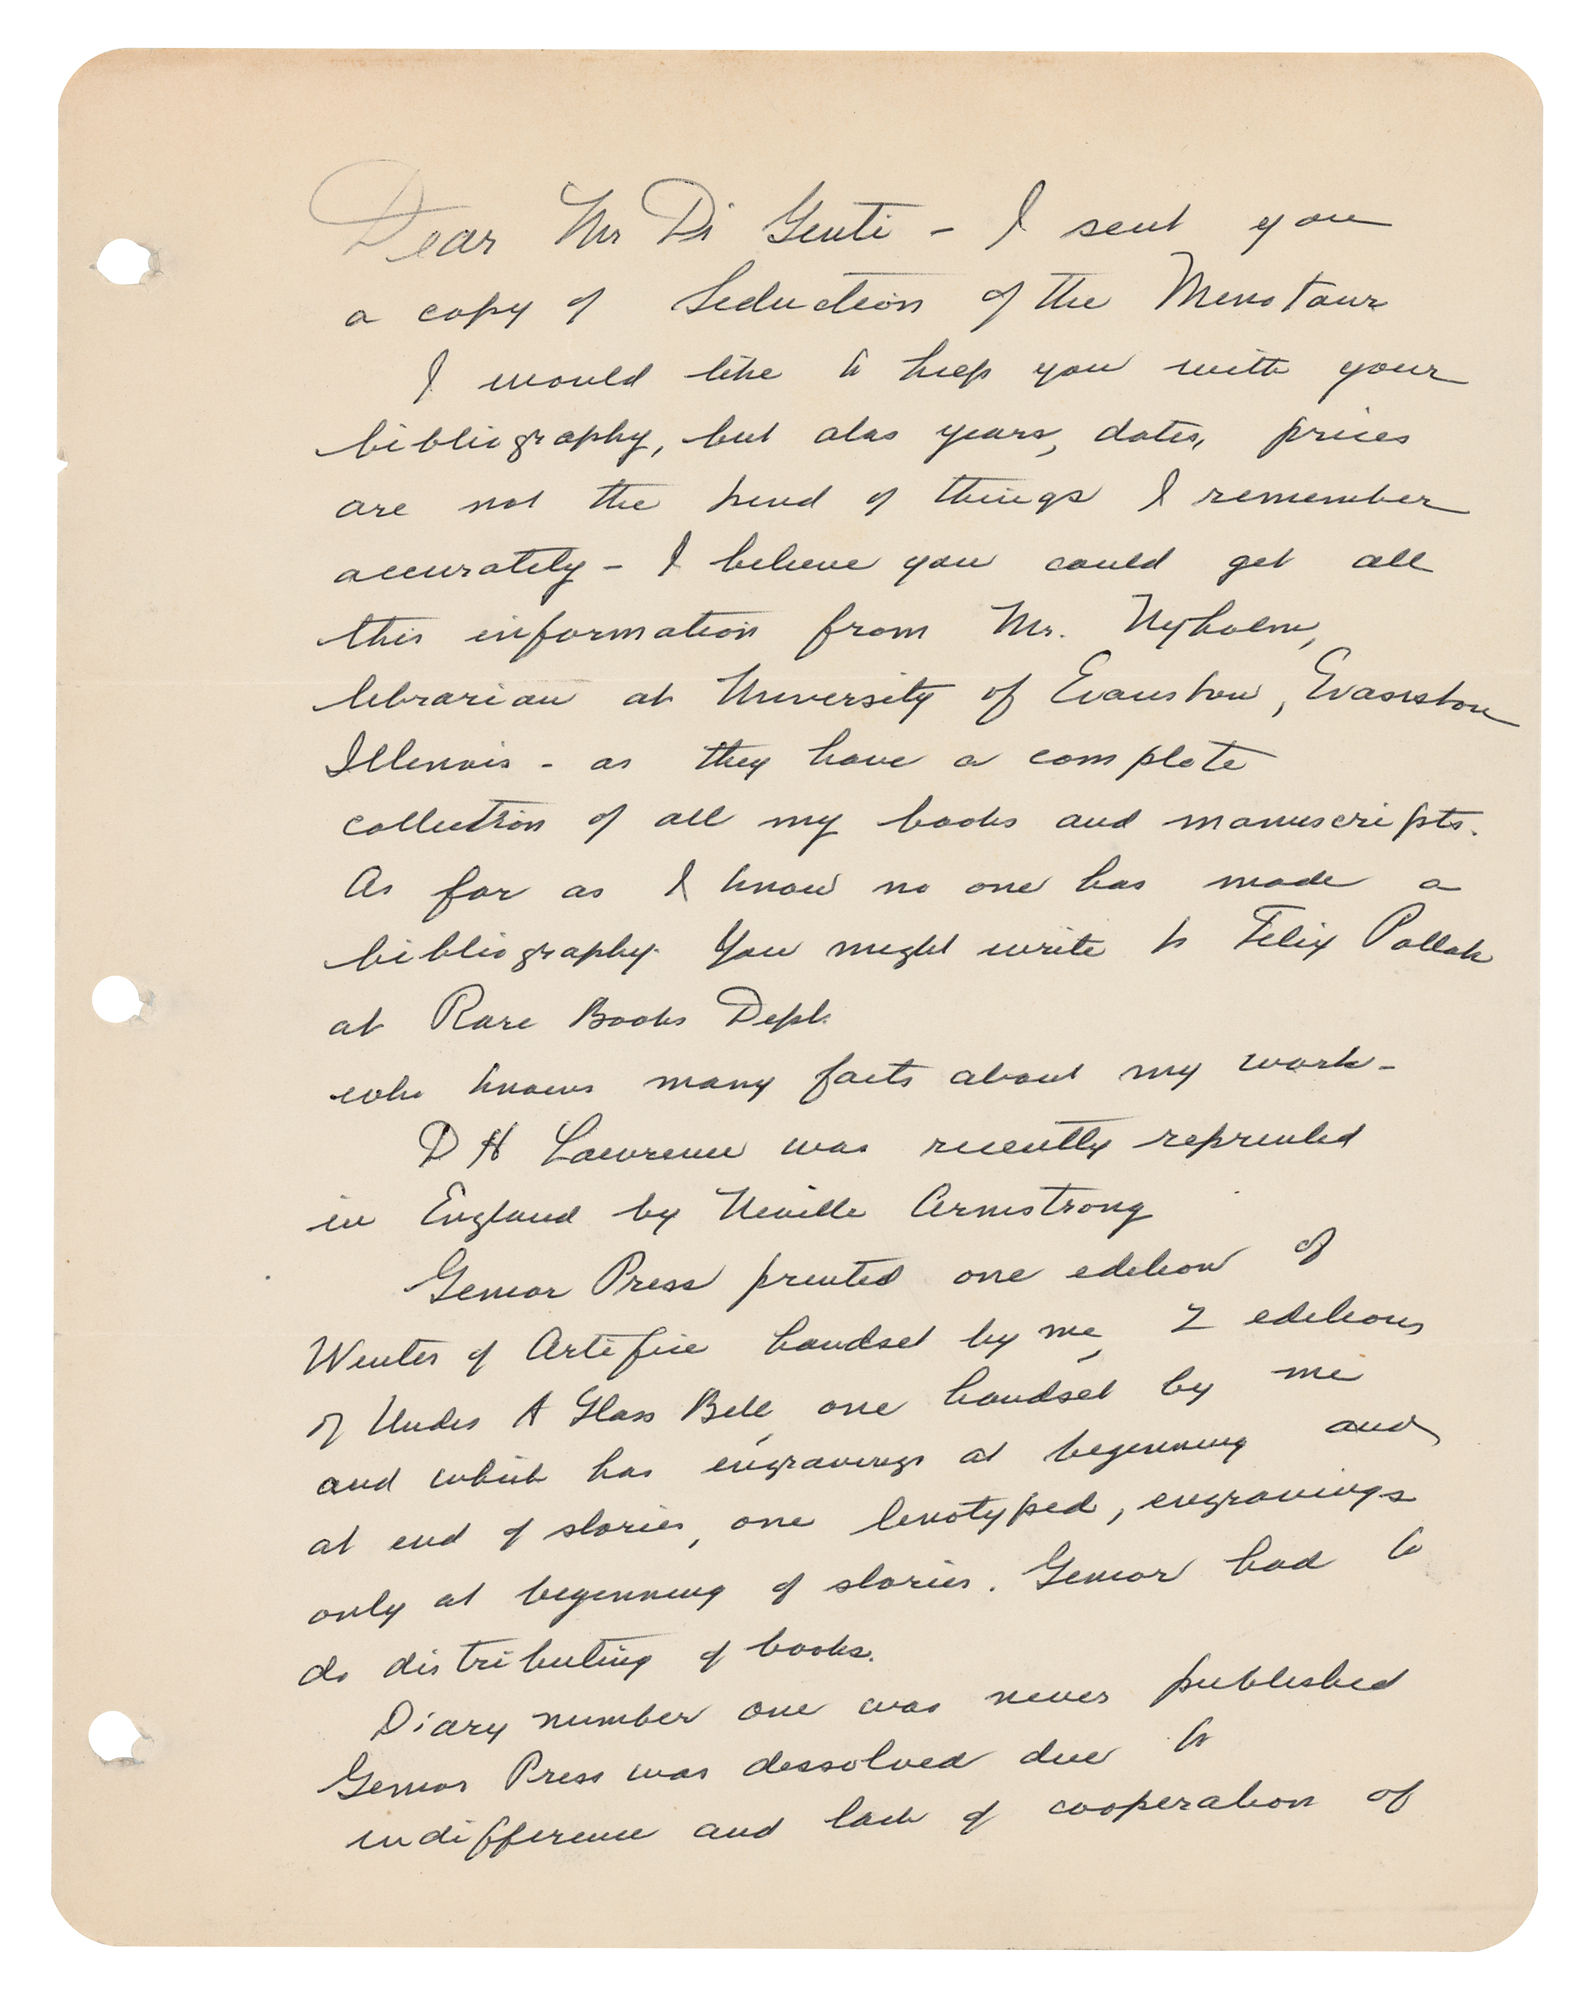 Dear Mr Di Genti - I sent you
a copy of Seduction of the Minotaur
I would like to help you with your
bibliography, but alas years, dates, prices
are not the kind of things I remember
accurately - I believe you could get all
this information from Mr. Nyholm,
librarian at University of Evanston, Evanston
Illinois - as they have a complete
collection of all my books and manuscripts.
As far as I know no one has made a
bibliography. You might write to Felix Pollak
at Rare Books Dept.
who knows many facts about my work -
D H Lawrence was recently reprinted
in England by Neville Armstrong
Gemor Press printed one edition of
Winter of Artifice handset by me, 2 editions
of Under A Glass Bell, one handset by me
and which has engravings at beginning and
at end of stories, one linotyped, engravings
only at beginning of stories. Gemor had to
do distributing of books.
Diary number one was never published
Gemor Press was dissolved due to
indifference and lack of cooperation of